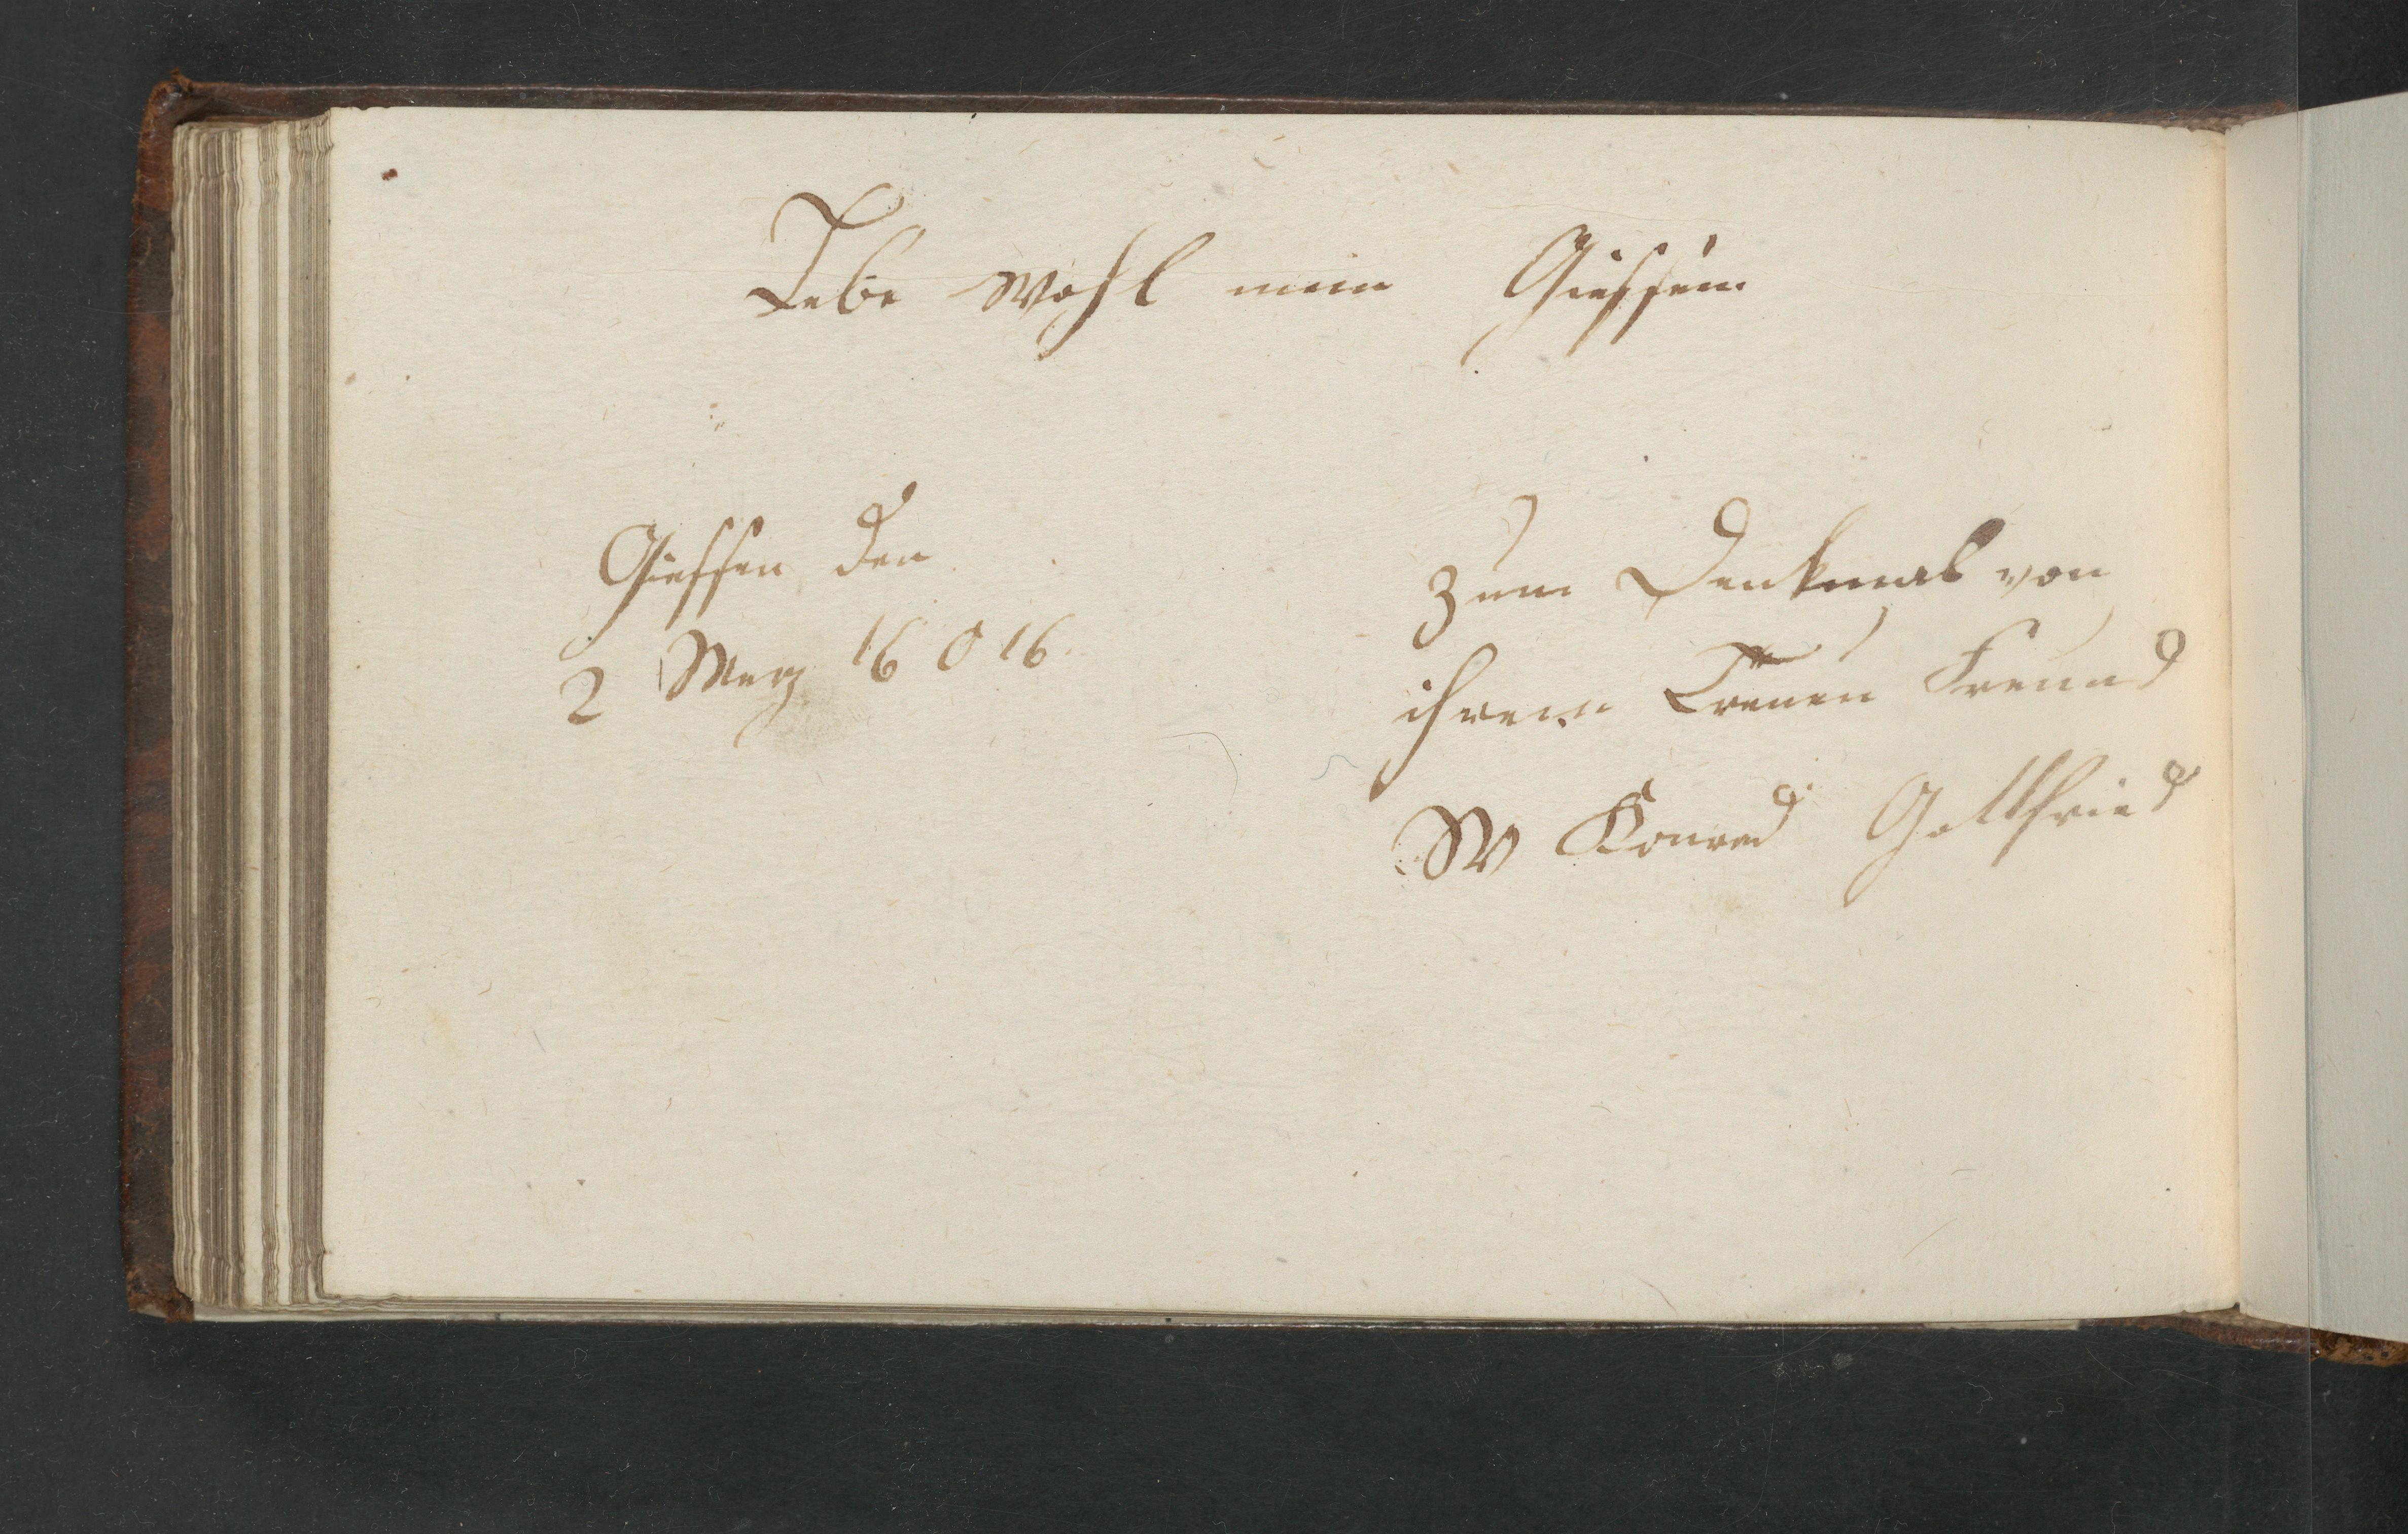 Lebe wohl mein Giessen
Giessen den
2 Merz 16 0 16
Zum Denkmal von
ihrem Treuen Freund
W Konrad Gottfried